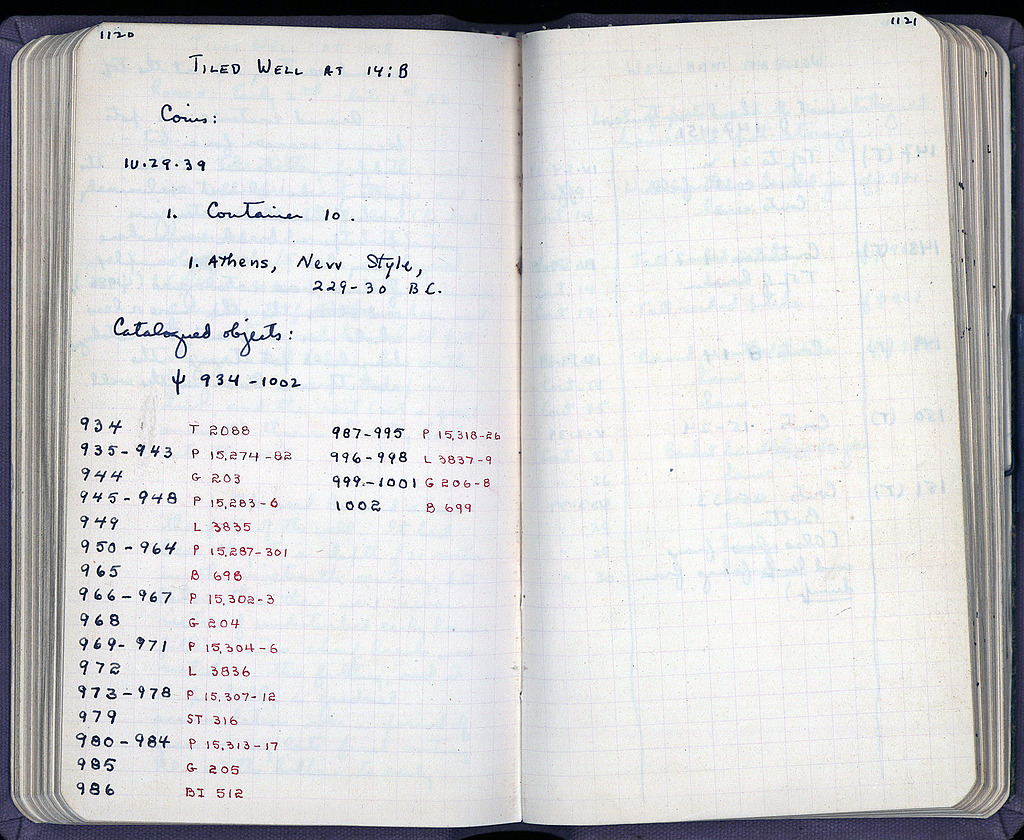 1120
TILED WELL AT 14:B
Coins:
IV.29.39
1. Container 10.
1. Athens, New Style,
229-30 B.C.
Catalogued objects:
ψ 934-1002
934 T 2088
935-943 P 15,274-82
944 G 203
945-948 P 15,283-6
949 L 3835
950-964 P 15,287-301
965 B 698
966-967 P 15,302-3
968 G 204
969-971 P 15,304-6
972 L 3836
973-978 P 15,307-12
979 ST 316
980-984 P 15,313-17
985 G 205
986 BI 512
987-995 P 15,318-26
996-998 L 3837-9
999-1001 G 206-8
1002 B 699
1121